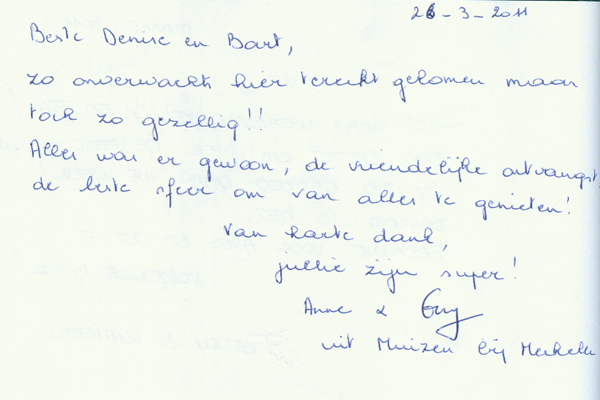 26-3-2011
Beste Denise en Bart,
zo onverwachts hier terecht gekomen maar
toch zo gezellig!!
Alles was er gewoon, de vriendelijke ontvangst,
de beste sfeer om van alles te genieten!
Van harte dank,
jullie zijn super!
Anne & Guy
uit Muizen bij Mechelen